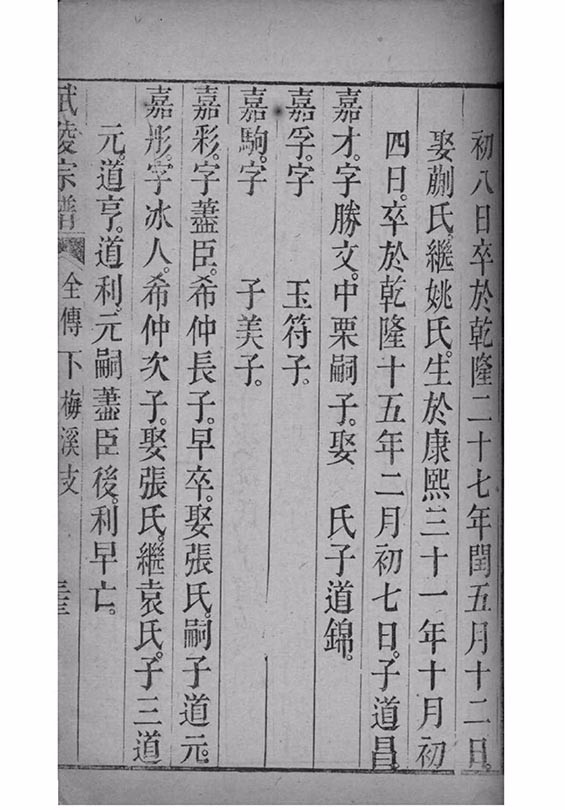 初八日卒於乾隆二十七年閏五月十二日。
娶蒯氏。繼姚氏。生於康熙三十一年十月初
四日。卒於乾隆十五年二月初七日。子道昌。
嘉才。字勝文。中栗嗣子。娶　氏子道錦。
嘉孚。字　玉符子。
嘉駒。字　子美子。
嘉彩。字藎臣。希仲長子。早卒。娶張氏。嗣子道元。
嘉彤。字冰人。希仲次子。娶張氏。繼袁氏。子三道
元。道亨。道利。元嗣藎臣後。利早亡。
武陵宗譜　全傳下梅溪支